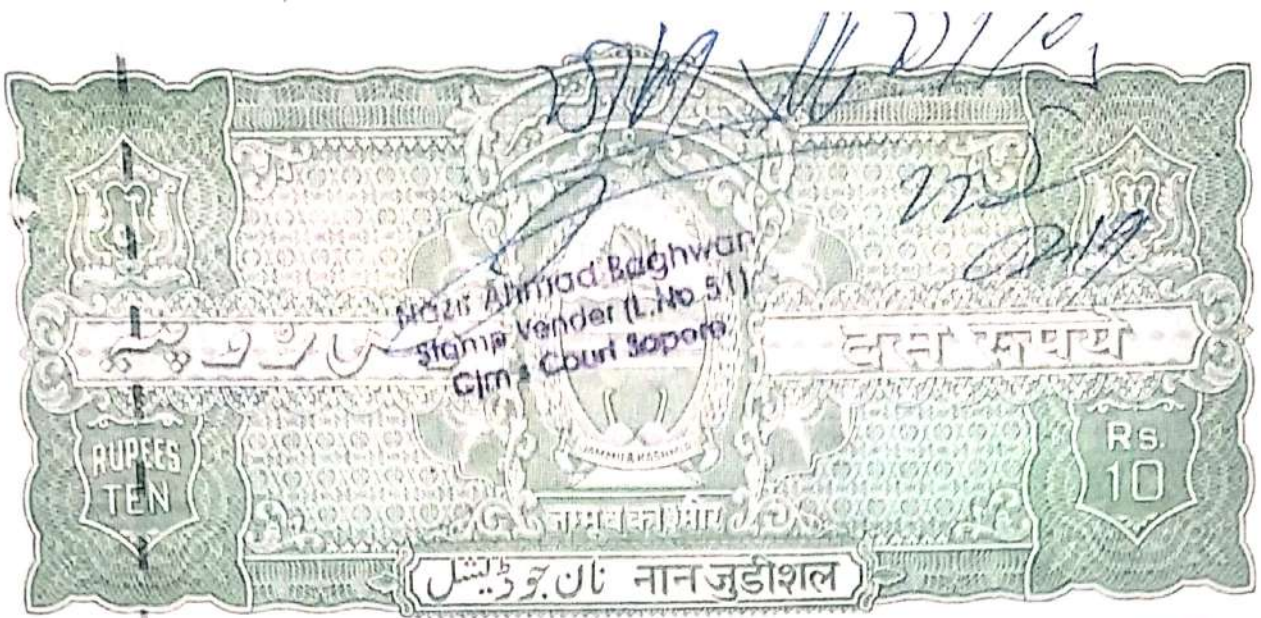 Nazir Ahmad Baghwan
Stamp Vender (L.No 51)
Cjm's Court Sopore
دس روپیہ
दस रूपये
RUPEES
TEN
Rs.
10
JAMMU & KASHMIR
जम्मू व काश्मीर
نان جوڈیشل
नान जुडीशल